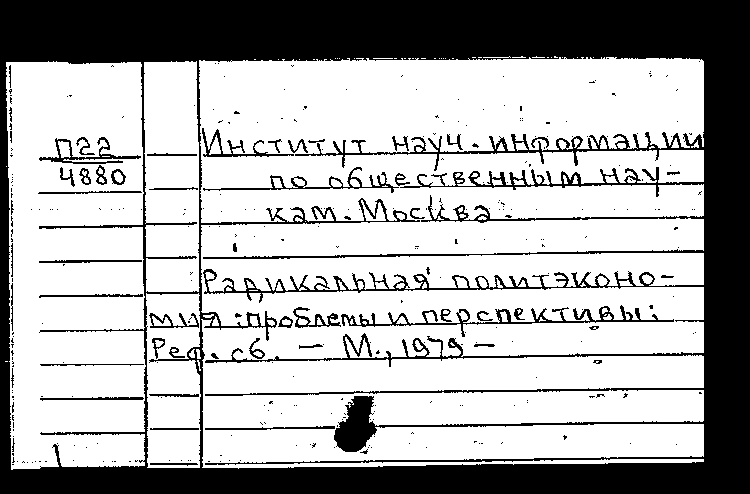 П22
4880
Институт науч. информации
по общественным нау-
кам. Москва.
Радикальная политэконо-
мия: проблемы и перспективы:
Реф. сб. — М., 1979 —